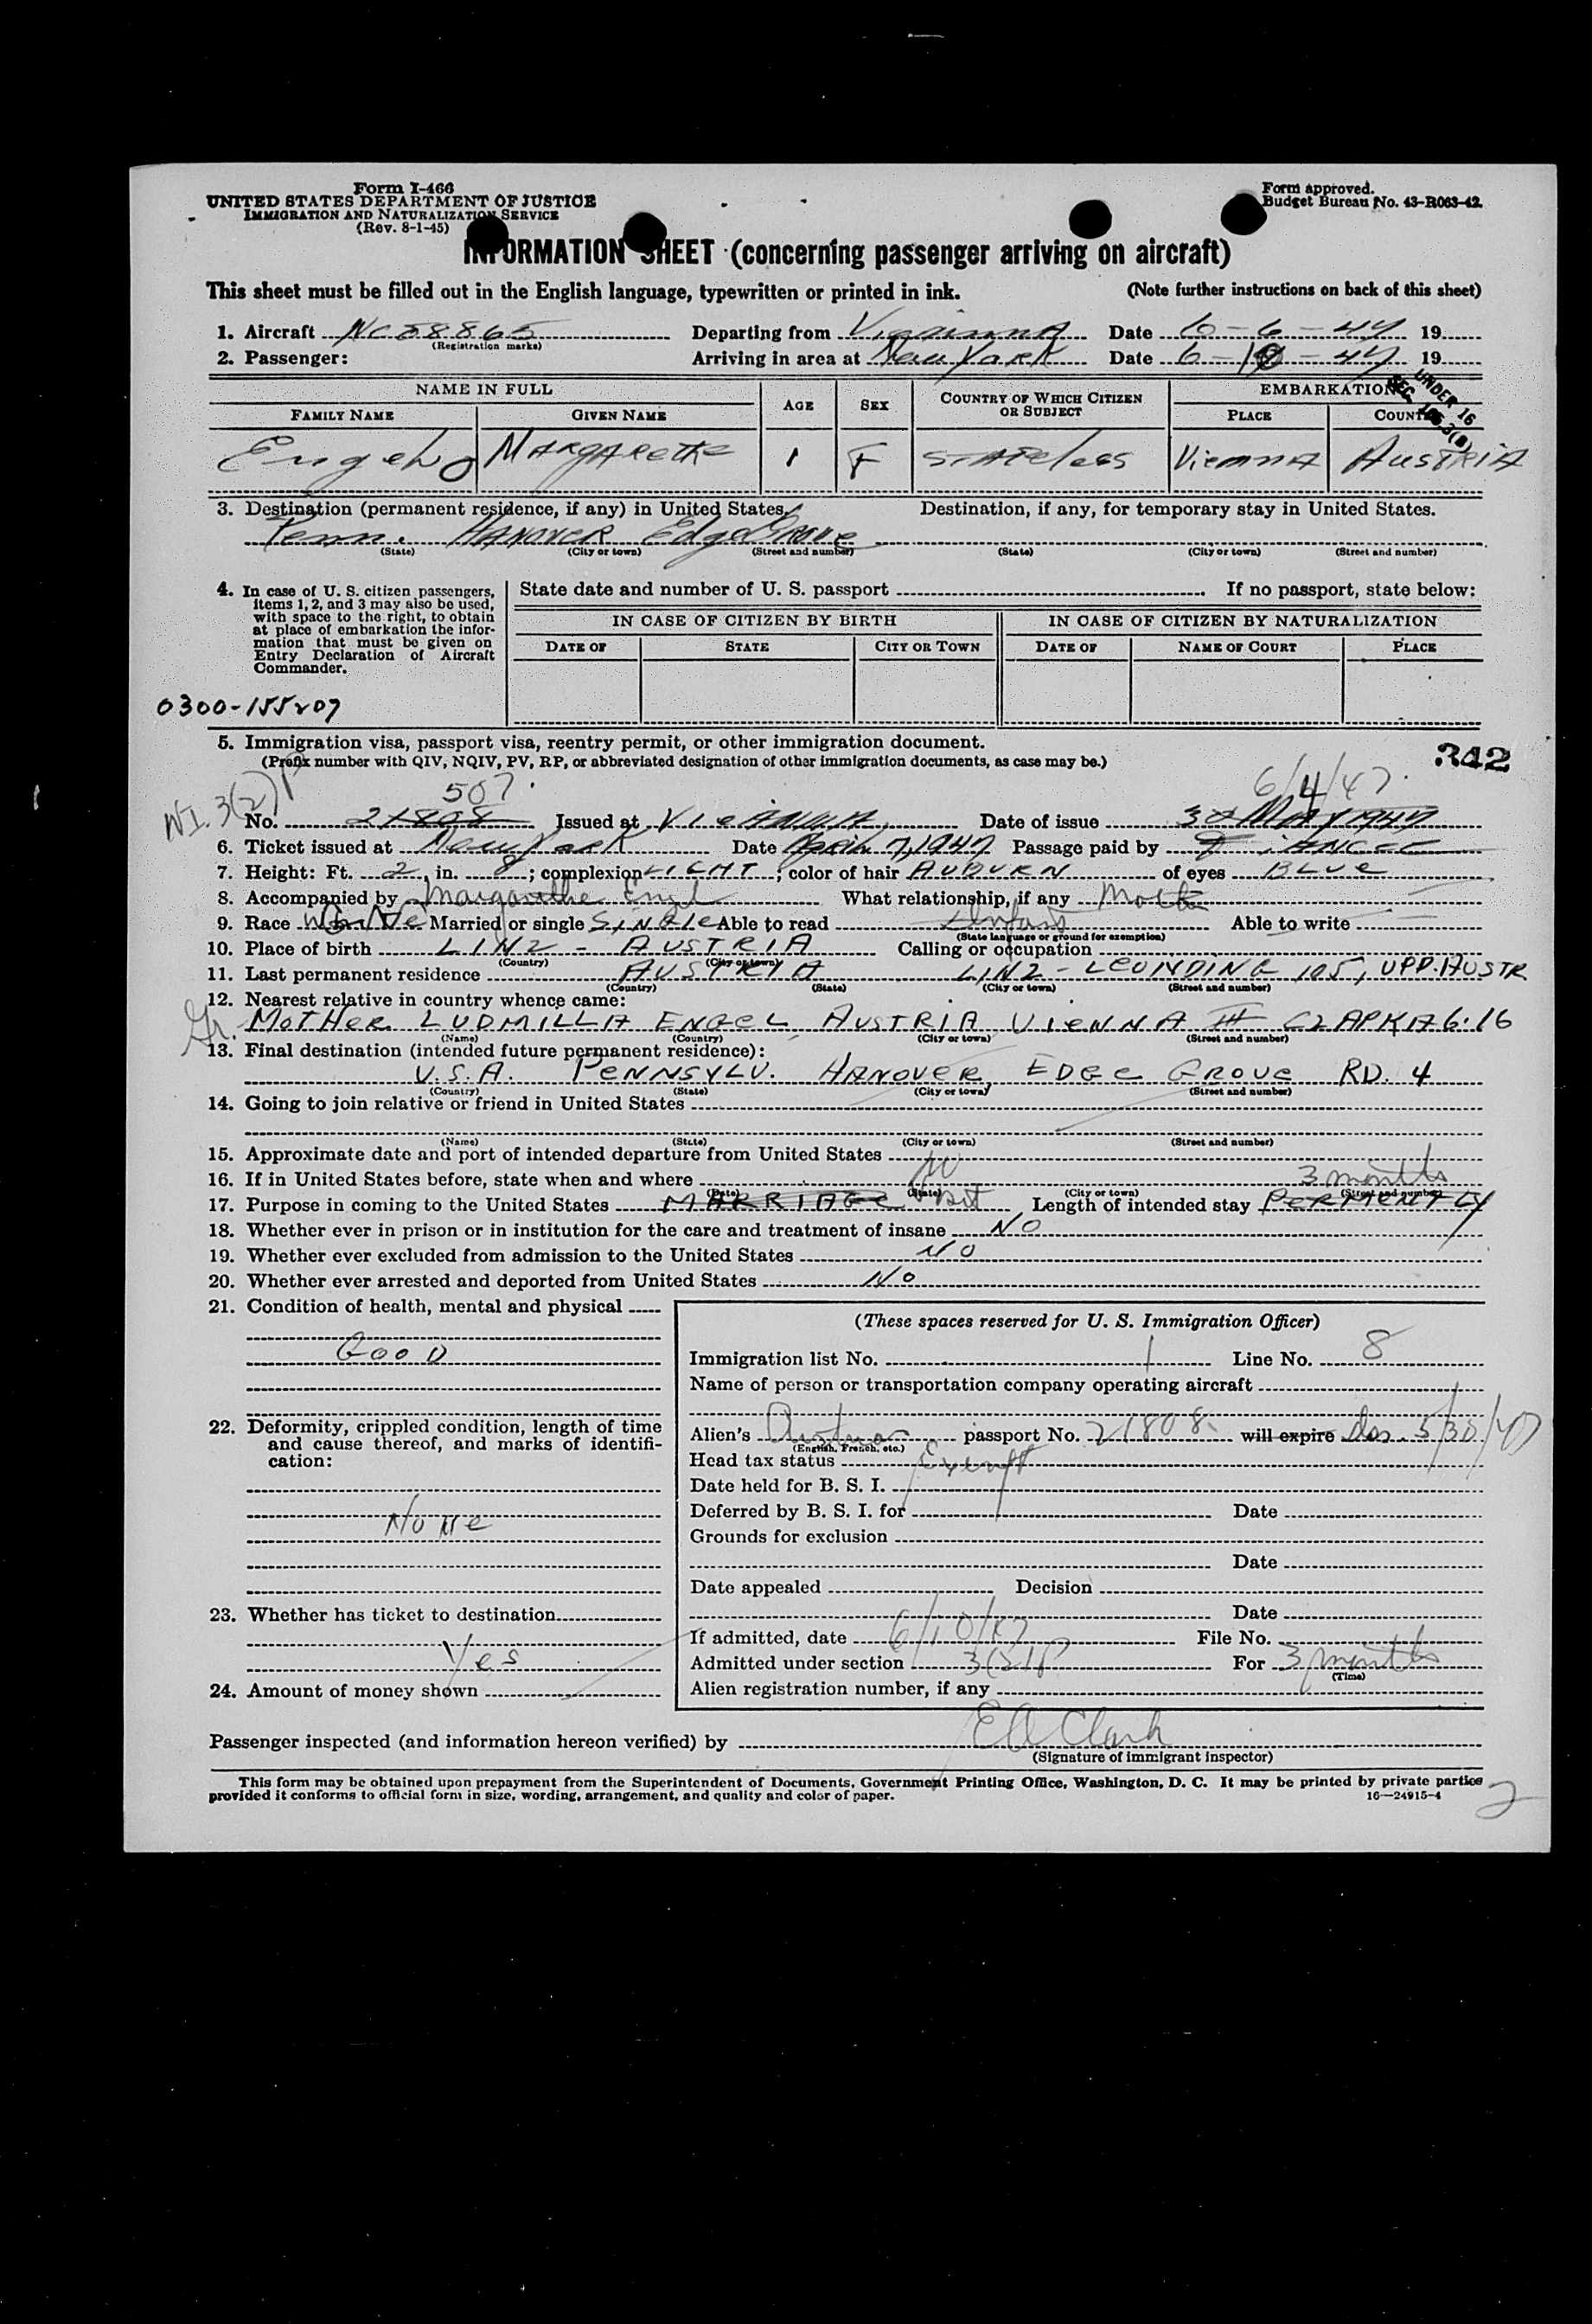 Form I-466
UNITED STATES DEPARTMENT OF JUSTICE
IMMIGRATION AND NATURALIZATION SERVICE
(Rev. 8-1-45)
Form approved.
Budget Bureau No. 43-R063-42.
INFORMATION SHEET (concerning passenger arriving on aircraft)
This sheet must be filled out in the English language, typewritten or printed in ink. (Note further instructions on back of this sheet)
1. Aircraft NC 88865 Departing from Vienna Date 6-6-47 19
(Registration marks)
2. Passenger: Arriving in area at New York Date 6-10-47 19
UNDER 16
SEC.
NAME IN FULL AGE SEX COUNTRY OF WHICH CITIZEN OR SUBJECT EMBARKATION
FAMILY NAME GIVEN NAME PLACE COUNTRY
Engel MARGARETHE 1 F STATEless Vienna AUSTRIA
3. Destination (permanent residence, if any) in United States. Destination, if any, for temporary stay in United States.
Penn. HANOVER Edge Grove
(State) (City or town) (Street and number) (State) (City or town) (Street and number)
4. In case of U. S. citizen passengers, items 1, 2, and 3 may also be used, with space to the right, to obtain at place of embarkation the information that must be given on Entry Declaration of Aircraft Commander.
State date and number of U. S. passport If no passport, state below:
IN CASE OF CITIZEN BY BIRTH IN CASE OF CITIZEN BY NATURALIZATION
DATE OF STATE CITY OR TOWN DATE OF NAME OF COURT PLACE
0300-155207
5. Immigration visa, passport visa, reentry permit, or other immigration document.
(Prefix number with QIV, NQIV, PV, RP, or abbreviated designation of other immigration documents, as case may be.)
342
N.I. 3(2) P 507. 6/4/47.
No. 21808 Issued at VIENNA Date of issue 30 MAY 1947
6. Ticket issued at New York Date April 7, 1947 Passage paid by
7. Height: Ft. 2, in. 8; complexion LIGHT; color of hair AUBURN of eyes BLUE
8. Accompanied by Margarethe Engel What relationship, if any Mother
9. Race White Married or single SINGLE Able to read Infant Able to write
(State language or ground for exemption)
10. Place of birth LINZ - AUSTRIA Calling or occupation
(Country) (City or town)
11. Last permanent residence AUSTRIA LINZ - LEONDING 105, UPP. AUSTR
(Country) (State) (City or town) (Street and number)
12. Nearest relative in country whence came:
Gr. MOTHER LUDMILLA ENGEL AUSTRIA VIENNA III CZAPKAG. 16
(Name) (Country) (City or town) (Street and number)
13. Final destination (intended future permanent residence):
U.S.A. PENNSYLV. HANOVER EDGE GROVE RD. 4
(Country) (State) (City or town) (Street and number)
14. Going to join relative or friend in United States
(Name) (State) (City or town) (Street and number)
15. Approximate date and port of intended departure from United States
16. If in United States before, state when and where No 3 months
(Date) (State) (City or town) (Street and number)
17. Purpose in coming to the United States MARRIAGE Visit Length of intended stay PERMENTLY
18. Whether ever in prison or in institution for the care and treatment of insane NO
19. Whether ever excluded from admission to the United States NO
20. Whether ever arrested and deported from United States No
21. Condition of health, mental and physical
GOOD
22. Deformity, crippled condition, length of time and cause thereof, and marks of identification:
None
23. Whether has ticket to destination
Yes
24. Amount of money shown
(These spaces reserved for U. S. Immigration Officer)
Immigration list No. 1 Line No. 8
Name of person or transportation company operating aircraft
Alien's Austrian passport No. 21808 will expire Iss. 5/30/47
(English, French, etc.)
Head tax status Exempt
Date held for B. S. I.
Deferred by B. S. I. for Date
Grounds for exclusion
Date
Date appealed Decision
Date
If admitted, date 6/10/47 File No.
Admitted under section 3(2)P For 3 months
(Time)
Alien registration number, if any
Passenger inspected (and information hereon verified) by E A Clark
(Signature of immigrant inspector)
This form may be obtained upon prepayment from the Superintendent of Documents, Government Printing Office, Washington, D. C. It may be printed by private parties
provided it conforms to official form in size, wording, arrangement, and quality and color of paper. 16—24915-4
2